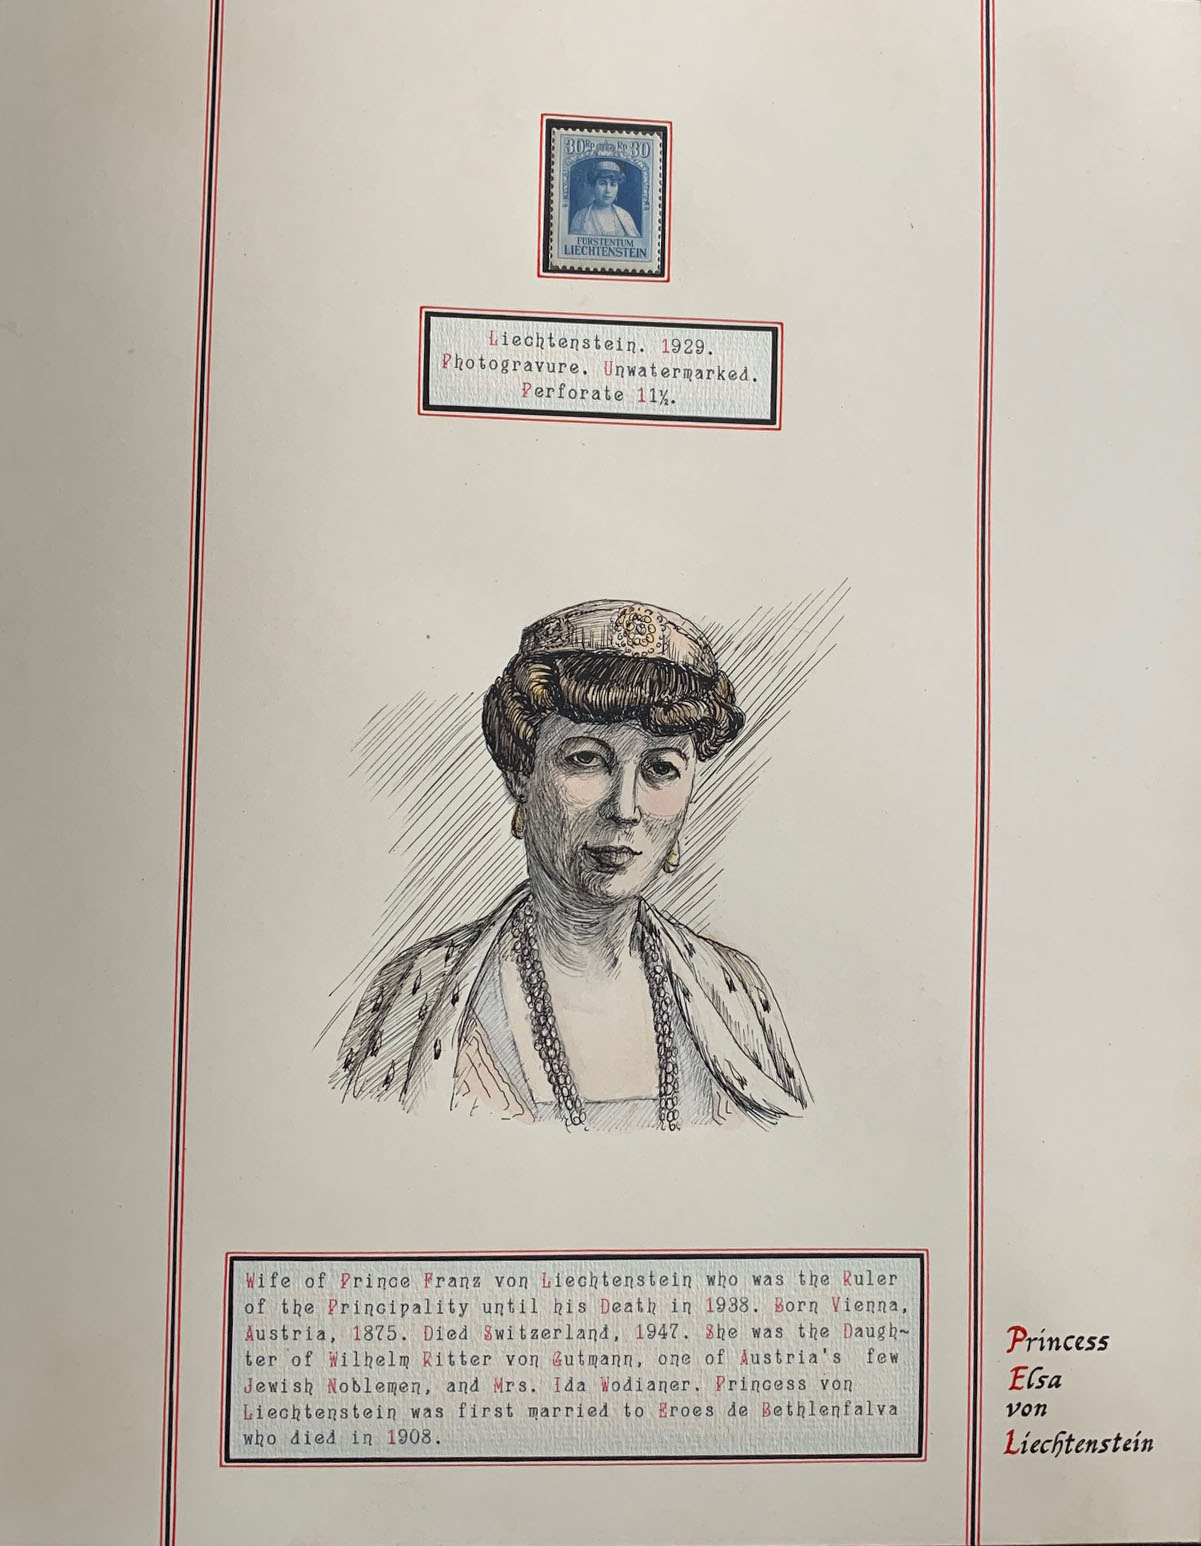 30 Rp Rp 30
FÜRSTENTUM
LIECHTENSTEIN
Liechtenstein. 1929.
Photogravure. Unwatermarked.
Perforate 11½.
Wife of Prince Franz von Liechtenstein who was the Ruler
of the Principality until his Death in 1938. Born Vienna,
Austria, 1875. Died Switzerland, 1947. She was the Daugh~
ter of Wilhelm Ritter von Gutmann, one of Austria's few
Jewish Noblemen, and Mrs. Ida Wodianer. Princess von
Liechtenstein was first married to Eroes de Bethlenfalva
who died in 1908.
Princess
Elsa
von
Liechtenstein